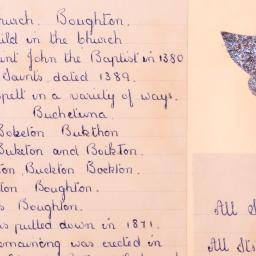 hurch. Boughton.
uild in the Church
int John the Baptist in 1380
Saints, dated 1389.
spelt in a variety of ways.
Buchetuna.
Boketon Bukthon
Buketon and Boikton.
ton, Buckton Bockton.
ton Boughton.
s Boughton.
as pulled down in 1871.
emaining was erected in
All S
All Sts